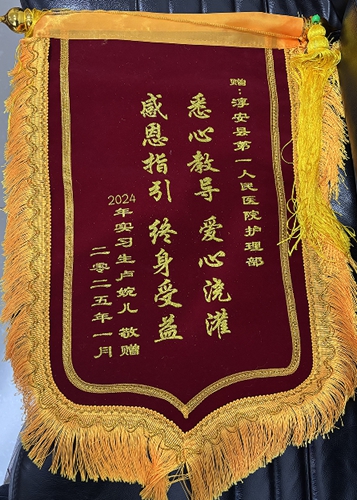 赠:淳安县第一人民医院护理部
悉心教导 爱心浇灌
感恩指引 终身受益
2024年实习生卢婉儿 敬赠
二零二五年一月